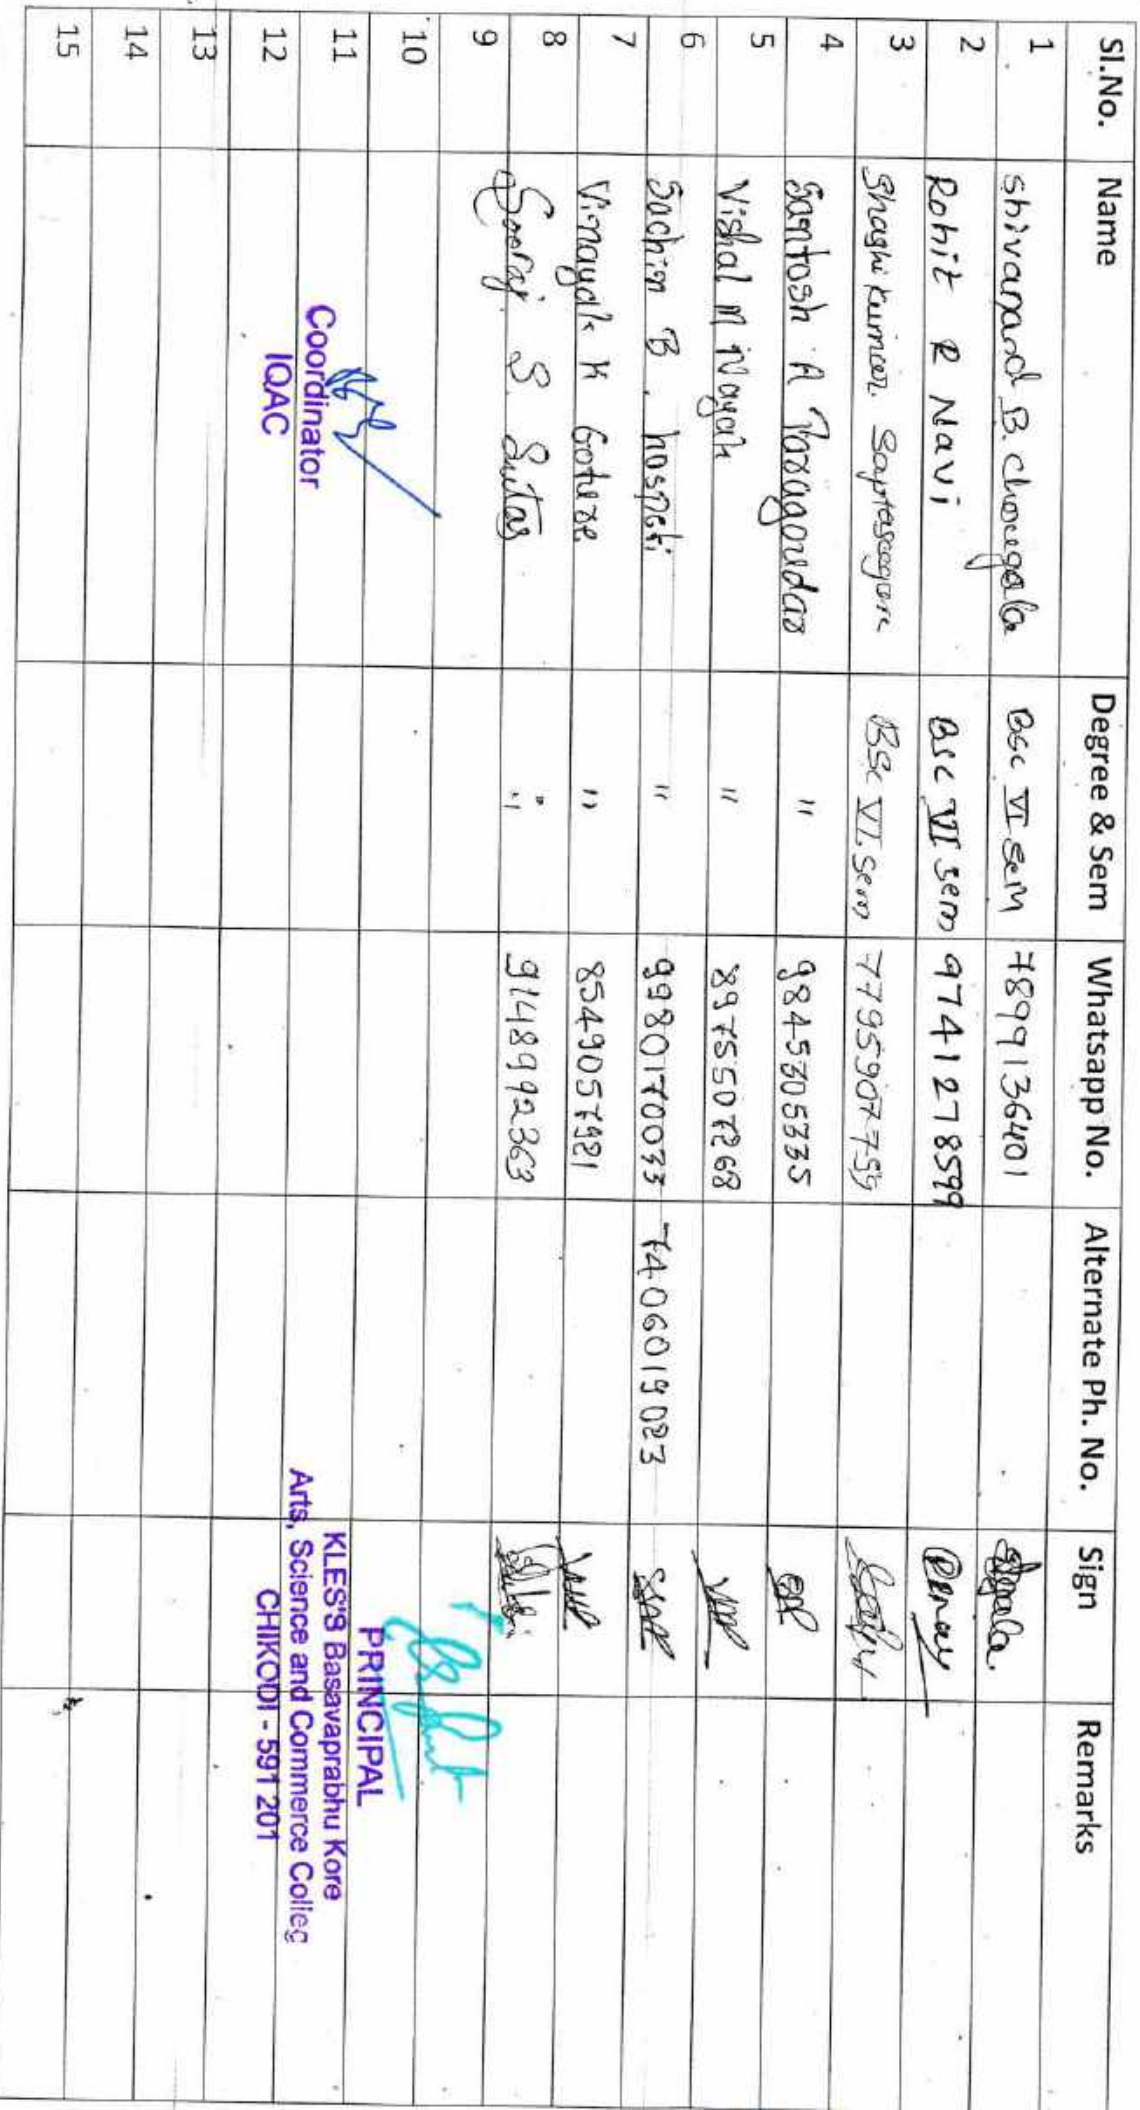 Sl.No. Name Degree & Sem Whatsapp No. Alternate Ph. No. Sign Remarks
1 Shivanand B. Chougala BSc VI Sem 7899136401
2 Rohit R Navi BSc VI Sem 9741278599
3 Shashikumar BSc VI Sem 7795907759
4 Santosh A " 9845305335
5 Vishal M Nayak " 8975507268
6 Sachin B. hospeti " 9980170033 7406019023
7 Vinayak K Goture " 8549057921
8 Sooraj S. Sutar " 9148992363
9
10
11
12
13
14
15
Coordinator
IQAC
PRINCIPAL
KLES'S Basavaprabhu Kore
Arts, Science and Commerce Colleg
CHIKODI - 591 201